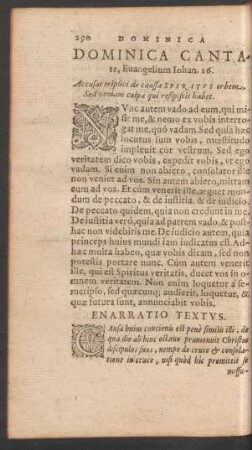 290 DOMINICA
DOMINICA CANTA-
te, Euangelium Iohan. 16.
Accusat triplici de caussa SPIRITVS orbem,
Sed veniam culpæ qui resipiscit habet.
NVnc autem vado ad eum, qui mi-
sit me, & nemo ex vobis interro-
gat me, quò vadam. Sed quia hæc
locutus sum vobis, mœstitudo
impleuit cor vestrum. Sed ego
veritatem dico vobis, expedit vobis, vt ego
vadam. Si enim non abiero, consolator ille
non veniet ad vos. Sin autem abiero, mittam
eum ad vos. Et cùm venerit ille, arguet mun-
dum de peccato, & de iustitia, & de iudicio.
De peccato quidem, quia non credunt in me.
De iustitia verò, quia ad patrem vado, & post-
hac non videbitis me. De iudicio autem, quia
princeps huius mundi iam iudicatus est. Ad-
hæc multa habeo, quæ vobis dicam, sed non
potestis portare nunc. Cùm autem venerit
ille, qui est Spiritus veritatis, ducet vos in o-
mnem veritatem. Non enim loquetur à se-
metipso, sed quæcunq; audierit, loquetur, &
quæ futura sunt, annunciabit vobis.
ENARRATIO TEXTVS.
CAusa huius concionis est penè similis illi, de
qua die ab hinc octauo præmonuit Christus
discipulos suos, nempe de cruce & consola-
tione in cruce, nisi quòd hîc promittit se